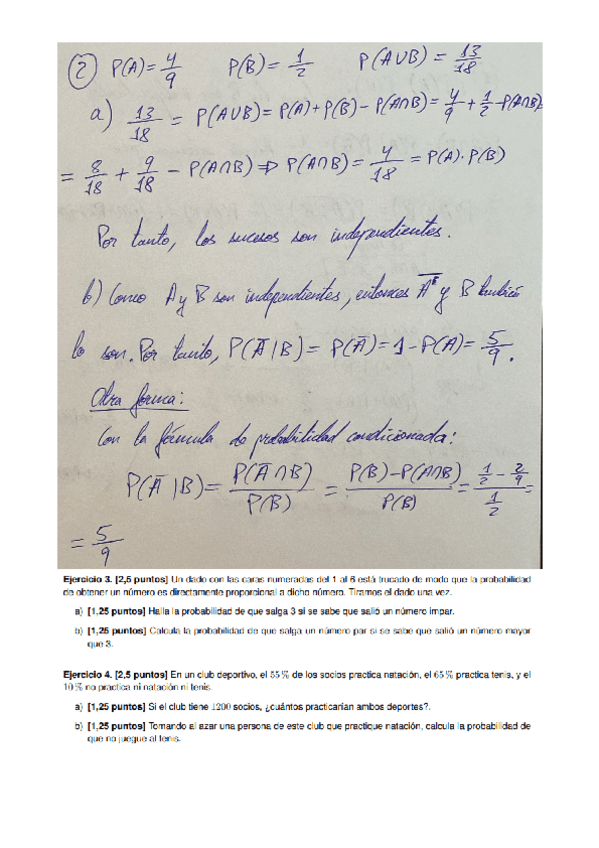 ② P(A) = 4/9 P(B) = 1/2 P(A∪B) = 13/18
a) 13/18 = P(A∪B) = P(A) + P(B) - P(A∩B) = 4/9 + 1/2 - P(A∩B) =
= 8/18 + 9/18 - P(A∩B) ⇒ P(A∩B) = 4/18 = P(A)·P(B)
Por tanto, los sucesos son independientes.
b) Como A y B son independientes, entonces A̅ y B también
lo son. Por tanto, P(A̅|B) = P(A̅) = 1 - P(A) = 5/9.
Otra forma:
Con la fórmula de probabilidad condicionada:
P(A̅|B) = P(A̅∩B)/P(B) = (P(B) - P(A∩B))/P(B) = (1/2 - 2/9)/(1/2) =
= 5/9
Ejercicio 3. [2,5 puntos] Un dado con las caras numeradas del 1 al 6 está trucado de modo que la probabilidad
de obtener un número es directamente proporcional a dicho número. Tiramos el dado una vez.
a) [1,25 puntos] Halla la probabilidad de que salga 3 si se sabe que salió un número impar.
b) [1,25 puntos] Calcula la probabilidad de que salga un número par si se sabe que salió un número mayor
que 3.
Ejercicio 4. [2,5 puntos] En un club deportivo, el 55 % de los socios practica natación, el 65 % practica tenis, y el
10 % no practica ni natación ni tenis.
a) [1,25 puntos] Si el club tiene 1200 socios, ¿cuántos practicarían ambos deportes?.
b) [1,25 puntos] Tomando al azar una persona de este club que practique natación, calcula la probabilidad de
que no juegue al tenis.